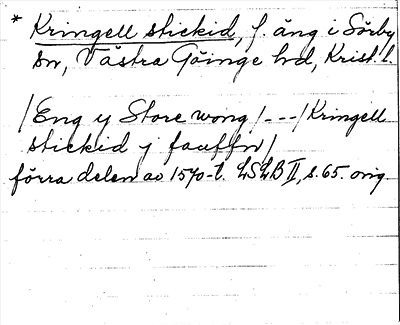 * Kringell stickid, f. äng i Sörby
sn, Västra Göinge hd, Krist. l.
/Eng y Store wong/---/Kringell
stickid y fauffn/
förra delen av 1570-t. LSLB II, s. 65. orig